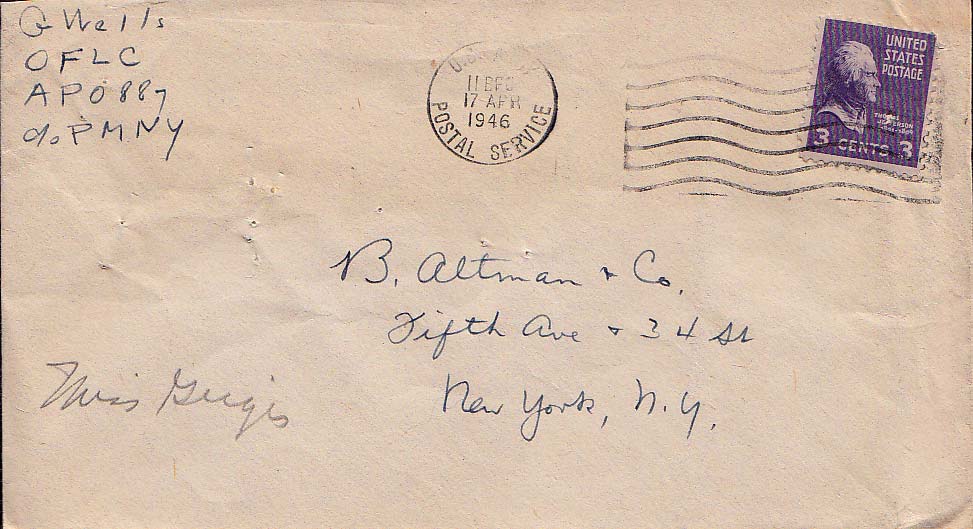 G Wells
OFLC
APO 887
c/o PMNY
11 DEC
17 APR
1946
POSTAL SERVICE
UNITED
STATES
POSTAGE
THOMAS
JEFFERSON
1801-1809
3 CENTS 3
B. Altman & Co.
Fifth Ave & 34 St
New York, N.Y.
Miss Geiges